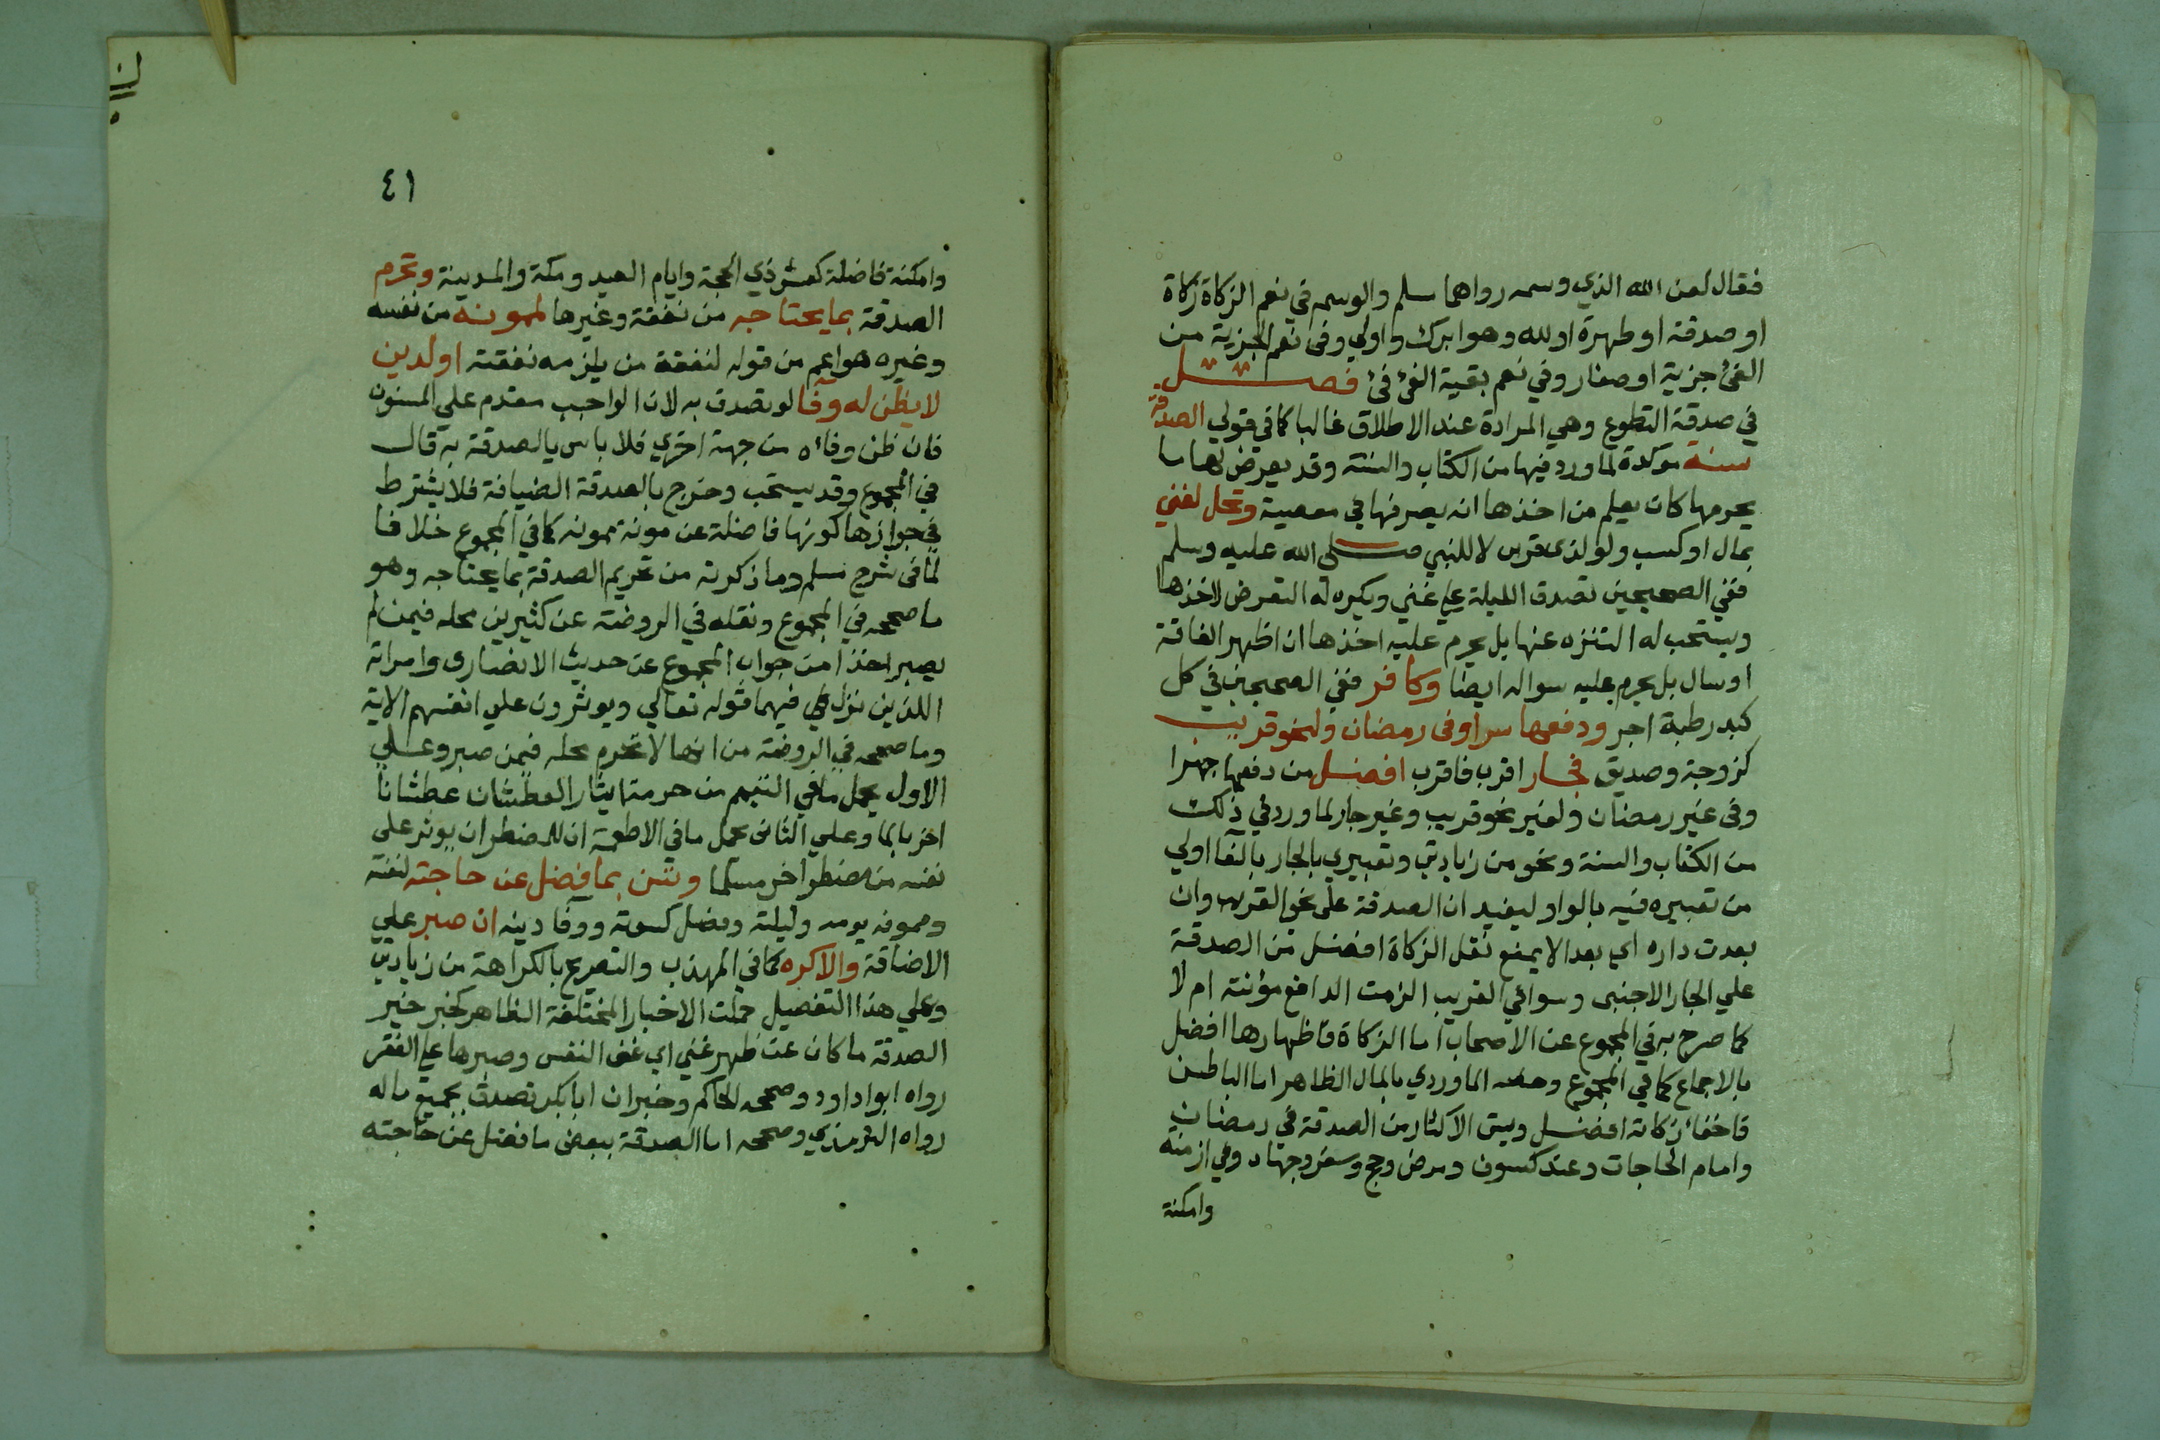 فقال لعن الله الذي وسمه رواهما مسلم والوسم في نعم الزكاة زكاة
او صدقة او طهرة او لله وهو ابرك واولي وفي نعم الجزية من
الفئ جزية او صغار وفي نعم بقية الفئ فئ فصل
في صدقة التطوع وهي المرادة عند الاطلاق غالبا كما في قولي الصدقة
سنة موكدة لما ورد فيها من الكتاب والسنة وقد يعرض لها ما
يحرمها كان يعلم من اخذها انه يصرفها في معصية وتحل لغني
بمال او كسب ولو لذى قربى لا للنبي صلى الله عليه وسلم
ففي الصحيحين تصدق الليلة علي غني ويكره له التعرض لاخذها
ويستحب له التنزه عنها بل يحرم عليه اخذها ان اظهر الفاقة
او سال بل يحرم عليه سواله ايضا وكافر ففي الصحيحين في كل
كبد رطبة اجر ودفعها سرا وفي رمضان ولنحو قريب
كزوجة وصديق فجار اقرب فاقرب افضل من دفعها جهرا
وفي غير رمضان ولغير نحو قريب وغير جار لما ورد في ذلك
من الكتاب والسنة ونحو من زيادتي وتعبيري بالجار بالفا اولي
من تعبيره فيه بالواو ليفيد ان الصدقة على نحو القريب وان
بعدت داره اي بعدا لا يمنع نقل الزكاة افضل من الصدقة
علي الجار الاجنبي وسوا في القريب الزمت الدافع مؤنته ام لا
كما صرح به في المجموع عن الاصحاب اما الزكاة فاظهارها افضل
بالاجماع كما في المجموع وخصه الماوردي بالمال الظاهر اما الباطن
فاخفا زكاته افضل ويسن الاكثار من الصدقة في رمضان
وامام الحاجات وعند كسوف ومرض وحج وسفر وجهاد وفي ازمنة
وامكنة
٤١
وامكنة فاضلة كعشر ذي الحجة وايام العيد ومكة والمدينة وتحرم
الصدقة بما يحتاجه من نفقة وغيرها لممونه من نفسه
وغيره هو اعم من قوله لنفقة من يلزمه نفقته او لدين
لا يظن له وفا لو تصدق به لان الواجب مقدم علي المسنون
فان ظن وفاه من جهة اخري فلا باس بالصدقة به قال
في المجموع وقد يستحب وخرج بالصدقة الضيافة فلا يشترط
في جوازها كونها فاضلة عن مونة ممونه كما في المجموع خلافا
لما في شرح مسلم وما ذكرته من تحريم الصدقة بما يحتاجه وهو
ما صححه في المجموع ونقله في الروضة عن كثيرين محله فيمن لم
يصبر اخذا من جواب المجموع عن حديث الانصاري وامراته
اللذين نزل فيهما قوله تعالي ويوثرون علي انفسهم الاية
وما صححه في الروضة من انها لا تحرم محله فيمن صبر وعلي
الاول يحمل ما في التيمم من حرمة ايثار العطشان عطشانا
اخر بالما وعلي الثاني يحمل ما في الاطعمة ان للمضطر ان يوثر علي
نفسه مضطرا اخر مسلما وتسن بما فضل عن حاجته لنفسه
وممونه يومه وليلته وفضل كسوته ووفا دينه ان صبر علي
الاضاقة والا كره كما في المهذب والتصريح بالكراهة من زيادتي
وعلي هذا التفصيل حملت الاخبار المختلفة الظاهر كخبر خير
الصدقة ما كان عن ظهر غني اي غني النفس وصبرها علي الفقر
رواه ابو داود وصححه الحاكم وخبر ان ابا بكر تصدق بجميع ماله
رواه الترمذي وصححه اما الصدقة ببعض ما فضل عن حاجته